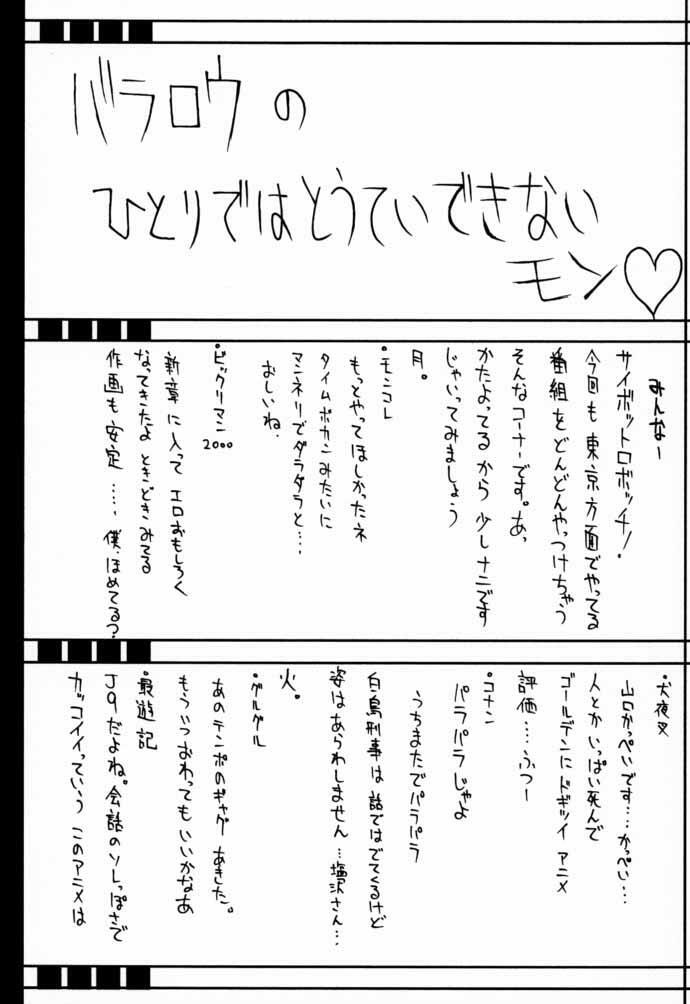 バラロウの
ひとりではとうていできない
モン♡
みんなー
サイボットロボッチ!
今回も東京方面でやってる
番組をどんどんやっつけちゃう
そんなコーナーです。あっ
かたよってるから少しナニです
じゃいってみましょう
月。
・モンコレ
もっとやってほしかったネ
タイムボカンみたいに
マンネリでダラダラと‥‥
おしいね.
・ビックリマン2000
新章に入って エロおもしろく
なってきたよ ときどきみてる
作画も安定 ‥‥ 僕、ほめてる?
・犬夜叉
山口かっぺいです‥‥かっぺい‥‥
人とかいっぱい死んで
ゴールデンにドギツイアニメ
評価‥‥ふつー
・コナン
パラパラじゃよ
うちまたでパラパラ
白鳥刑事は話ではでてくるけど
姿はあらわしません‥‥塩沢さん‥‥
火。
・グルグル
あのテンポのギャグ あきた。
もういつおわってもいいかなあ
・最遊記
J9だよね。会話のソレっぽさで
カッコイイっていう このアニメは